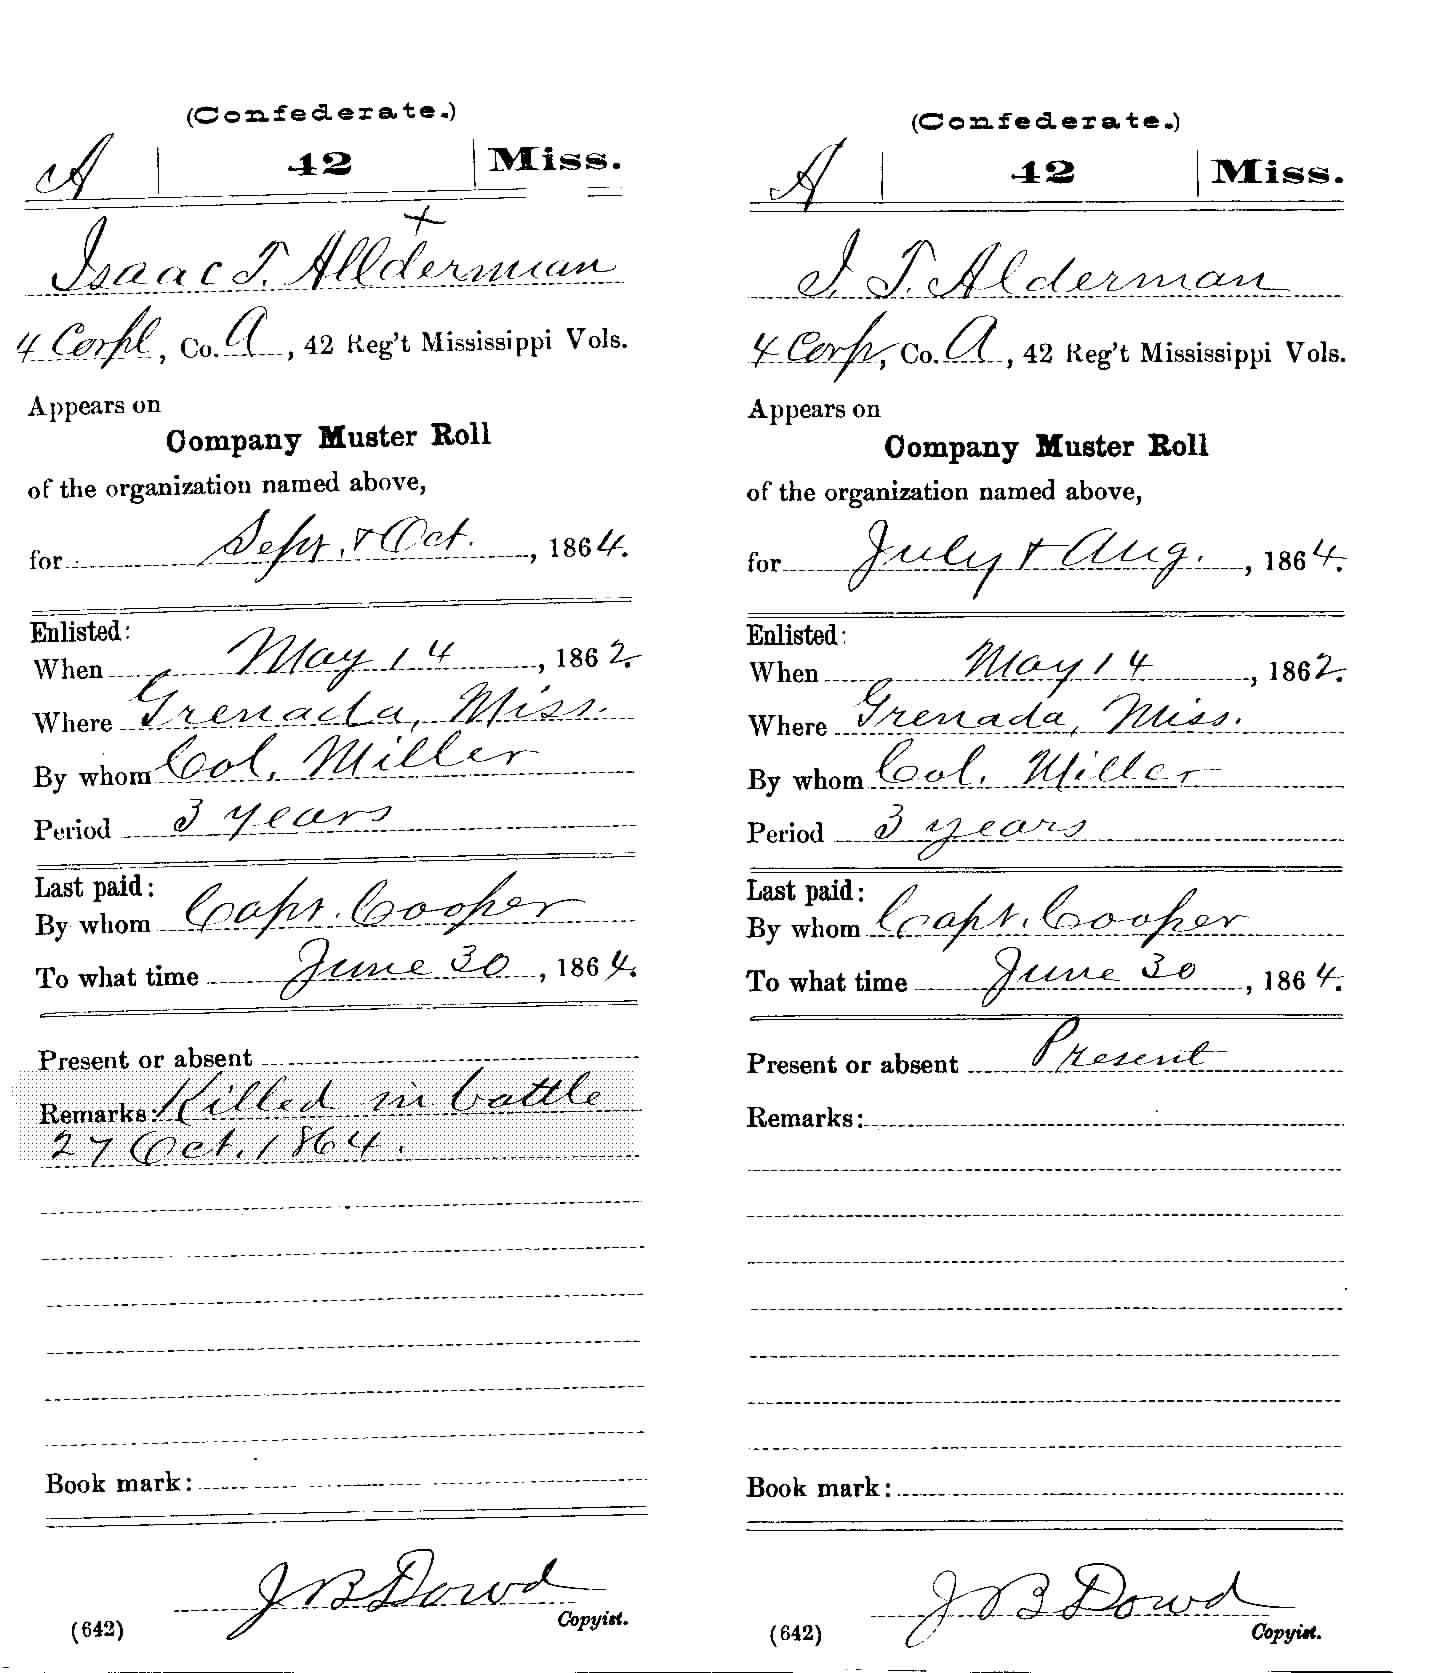 (Confederate.)
A | 42 | Miss.
+
Isaac T. Allderman
4 Corpl, Co. A, 42 Reg't Mississippi Vols.
Appears on
Company Muster Roll
of the organization named above,
for Sept. & Oct., 1864.
Enlisted:
When May 14, 1862.
Where Grenada, Miss.
By whom Col. Miller
Period 3 years
Last paid:
By whom Capt. Cooper
To what time June 30, 1864.
Present or absent
Remarks: Killed in battle
27 Oct. 1864.
Book mark:
J B Dowd
(642) Copyist.
(Confederate.)
A | 42 | Miss.
I. T. Alderman
4 Corp, Co. A, 42 Reg't Mississippi Vols.
Appears on
Company Muster Roll
of the organization named above,
for July & Aug., 1864.
Enlisted:
When May 14, 1862.
Where Grenada, Miss.
By whom Col. Miller
Period 3 years
Last paid:
By whom Capt. Cooper
To what time June 30, 1864.
Present or absent Present
Remarks:
Book mark:
J B Dowd
(642) Copyist.